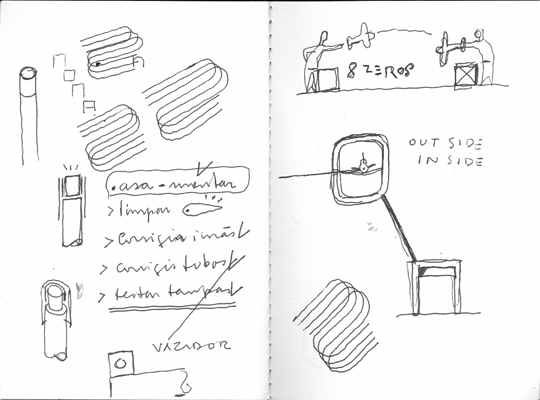 • asa - montar
> limpar
> corrigir imãs
> corrigir tubos
> testar tampas
8 ZEROS
OUT SIDE
IN SIDE